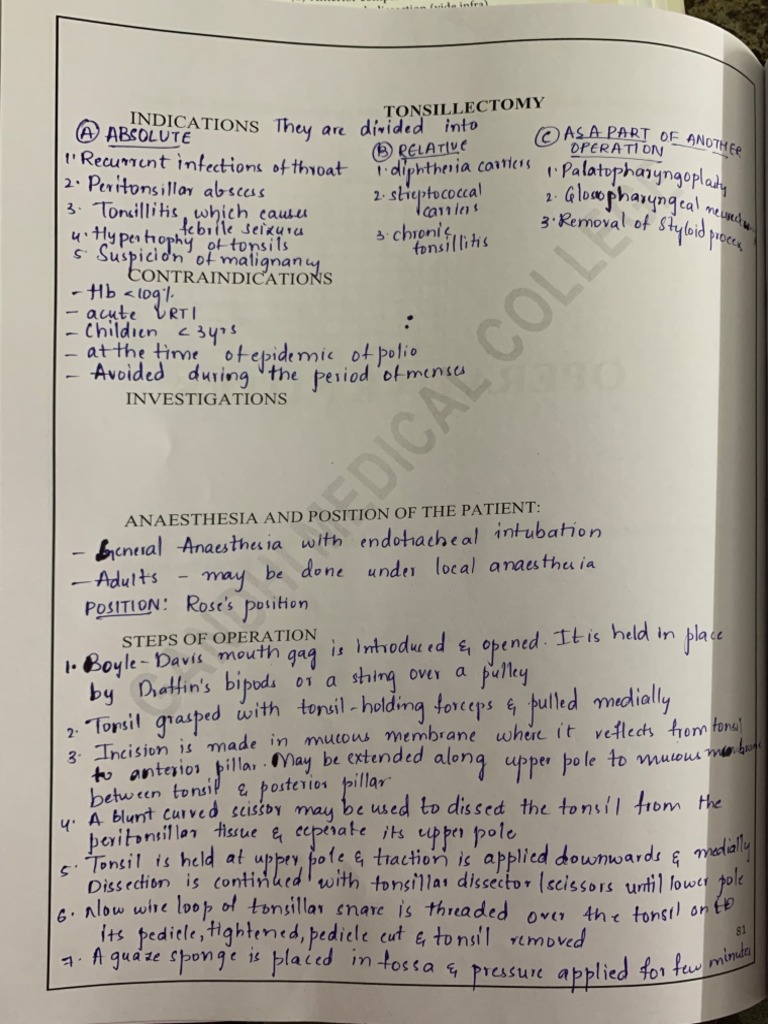 (vide infra)
TONSILLECTOMY
INDICATIONS They are divided into
(A) ABSOLUTE
1. Recurrent infections of throat
2. Peritonsillar abscess
3. Tonsillitis, which causes
febrile seizures
4. Hypertrophy of tonsils
5. Suspicion of malignancy
(B) RELATIVE
1. diphtheria carriers
2. streptococcal
carriers
3. chronic
tonsillitis
(C) AS A PART OF ANOTHER
OPERATION
1. Palatopharyngoplasty
2. Glossopharyngeal
3. Removal of styloid process
CONTRAINDICATIONS
- Hb <10g%
- acute URTI
- Children < 3yrs
- at the time of epidemic of polio
- Avoided during the period of menses
INVESTIGATIONS
ANAESTHESIA AND POSITION OF THE PATIENT:
- General Anaesthesia with endotracheal intubation
- Adults - may be done under local anaesthesia
POSITION: Rose's position
STEPS OF OPERATION
1. Boyle-Davis mouth gag is introduced & opened. It is held in place
by Draffin's bipods or a string over a pulley
2. Tonsil grasped with tonsil-holding forceps & pulled medially
3. Incision is made in mucous membrane where it reflects from tonsil
to anterior pillar. May be extended along upper pole to mucous membrane
between tonsil & posterior pillar
4. A blunt curved scissor may be used to dissect the tonsil from the
peritonsillar tissue & seperate its upper pole
5. Tonsil is held at upper pole & traction is applied downwards & medially
Dissection is continued with tonsillar dissector/scissors until lower pole
6. Now wire loop of tonsillar snare is threaded over the tonsil on to
its pedicle, tightened, pedicle cut & tonsil removed
7. A guaze sponge is placed in fossa & pressure applied for few minutes
81
GANDHI MEDICAL COLLE